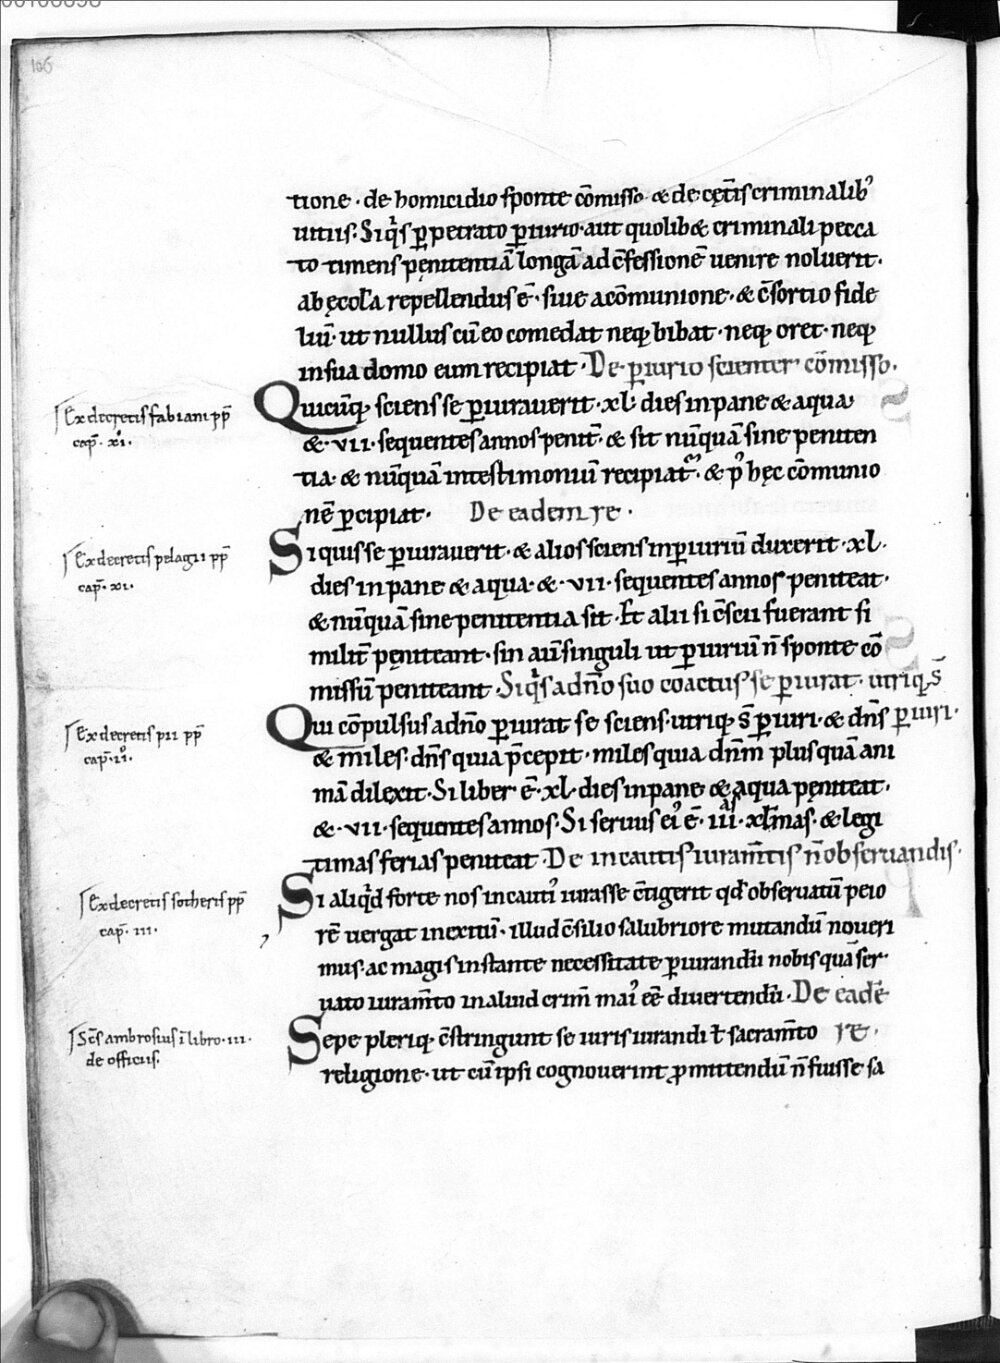 106
tione · de homicidio sponte cōmisso · & de cęt̄is criminalib᾽
uitiis. Siq̍s ꝑpetrato ꝑiurio · aut quolib& criminali pecca
to timens pęnitentiā longā ad c̄fessionē uenire noluerit.
ab ęccl̄a repellendus ē · siue a cōmunione · & c̄sortio fide
liū · ut nullus cū eo comedat neq; bibat · neq; oret · neq;
in sua domo eum recipiat · De ꝑiurio scienter cōmisso.
Ex decretis fabiani pp̄
cap̄. xi.
Quicūq; sciens se ꝑiurauerit · xl· dies in pane & aqua
& · vii · sequentes annos penit̄ · & sit nūquā sine peniten
tia · & nūquā in testimoniū recipiat᾽ · & p᾽ hęc cōmunio
nē ꝑcipiat · De eadem re ·
Ex decretis pelagii pp̄
cap̄. xi.
Si quis se ꝑiurauerit · & alios sciens in ꝑiuriū duxerit · xl ·
dies in pane & aqua · & · vii · sequentes annos peniteat ·
& nūquā sine penitentia sit · Et alii si c̄scii fuerant si
milit̄ pęniteant · sin aū singuli ut ꝑiuriū n̄ sponte cō
missū peniteant · Siq̍s a dn̄o suo coactus se ꝑiurat · utriq; s̄
Ex decretis pii pp̄
cap̄. ii.
Qui cōpulsus a dn̄o ꝑiurat se sciens · utriq; s̄ ꝑiuri · & dn̄s ꝑiuri ·
& miles · dn̄s quia p̄cepit · miles quia dn̄m plus quā ani
mā dilexit · Si liber ē · xl · dies in pane & aqua pęniteat ·
& · vii · sequentes annos · Si seruus ei᾽ ē · iii · xl̄mas · & legi
timas ferias peniteat · De incautis iuram̄tis n̄ obseruandis ·
Ex decretis sotheris pp̄
cap̄. iii.
Si aliq̍d forte nos incauti᾽ iurasse c̄tigerit qd̄ obseruatū peio
rē uergat in exitū · illud c̄silio salubriore mutandū noueri
mus · ac magis instante necessitate ꝑiurandū nobis quā ser
uato iuram̄to in aliud crim̄ mai᾽ eē diuertendū · De eadē
re ·
Sc̄s ambrosius ī libro · iii ·
de officiis.
Sepe pleriq; c̄stringunt se iuris iurandi ł sacram̄to
religione · ut cū ipsi cognouerint ꝓmittendū n̄ fuisse sa